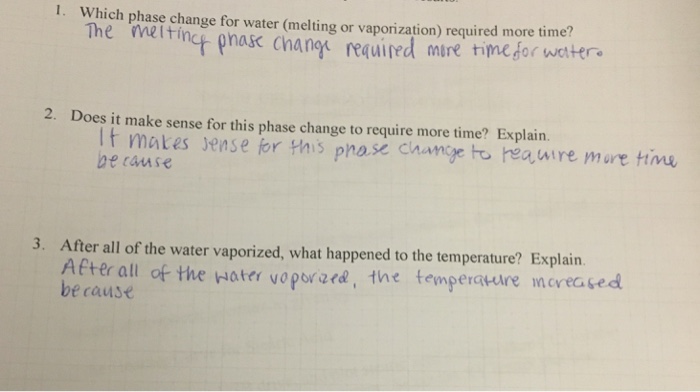 1. Which phase change for water (melting or vaporization) required more time?
The melting phase change required more time for water.
2. Does it make sense for this phase change to require more time? Explain.
It makes sense for this phase change to require more time
because
3. After all of the water vaporized, what happened to the temperature? Explain.
After all of the water vaporized, the temperature increased
because